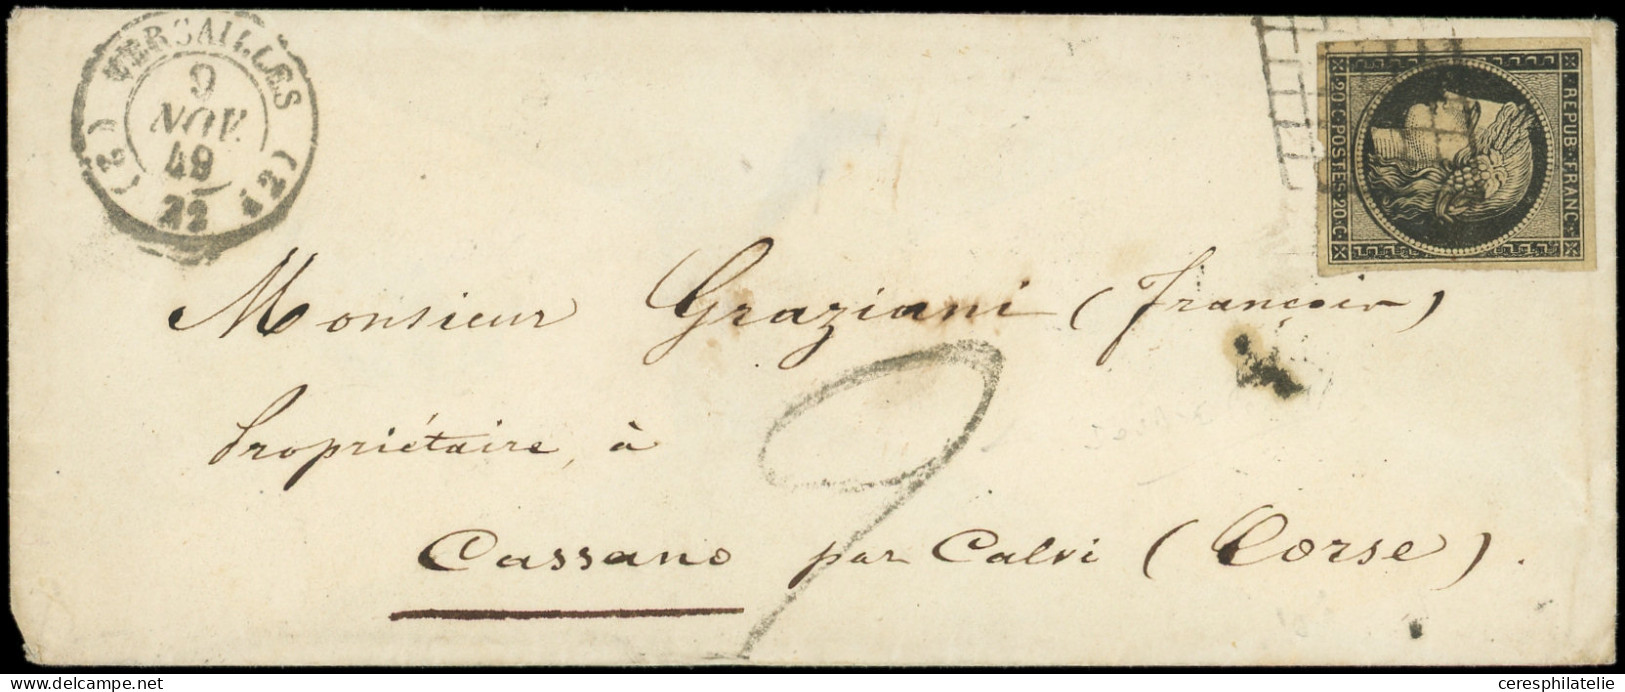 VERSAILLES
9
NOV.
49
(2) 22 (72)
REPUB. FRANC.
20.C. POSTES. 20.C.
Monsieur Graziani (François)
Propriétaire, à
Cassano par Calvi (Corse).
ceresphilatelie